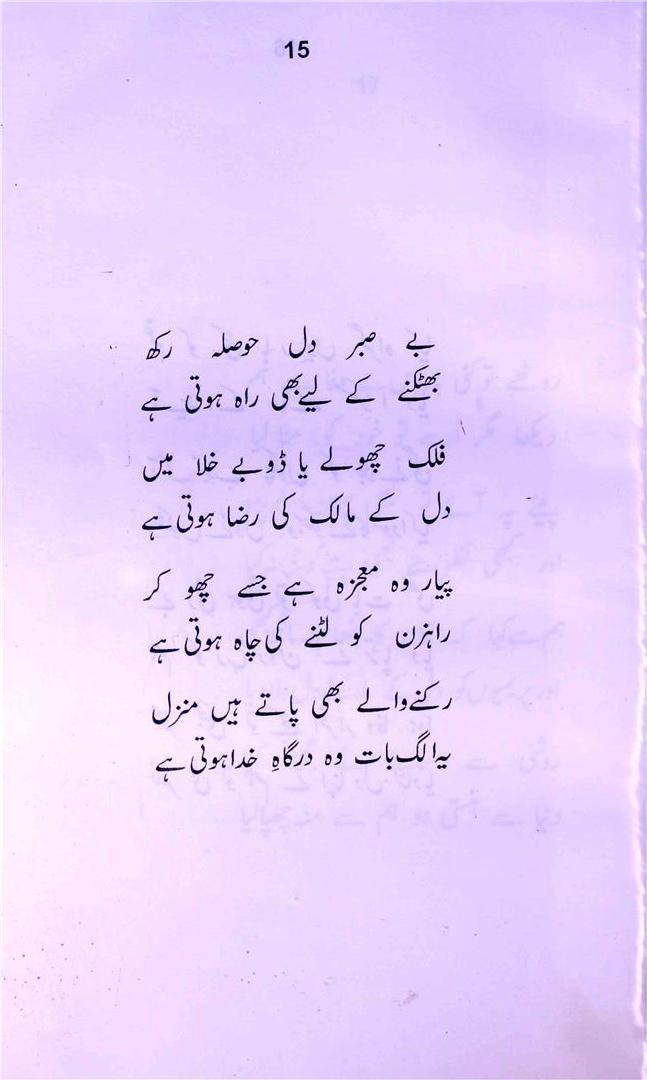 15
بے صبر دل حوصلہ رکھ
بھٹکنے کے لیے بھی راہ ہوتی ہے
فلک چھولے یا ڈوبے خلا میں
دل کے مالک کی رضا ہوتی ہے
پیار وہ معجزہ ہے جسے چھو کر
راہزن کو لٹنے کی چاہ ہوتی ہے
رکنے والے بھی پاتے ہیں منزل
یہ الگ بات وہ درگاہِ خدا ہوتی ہے